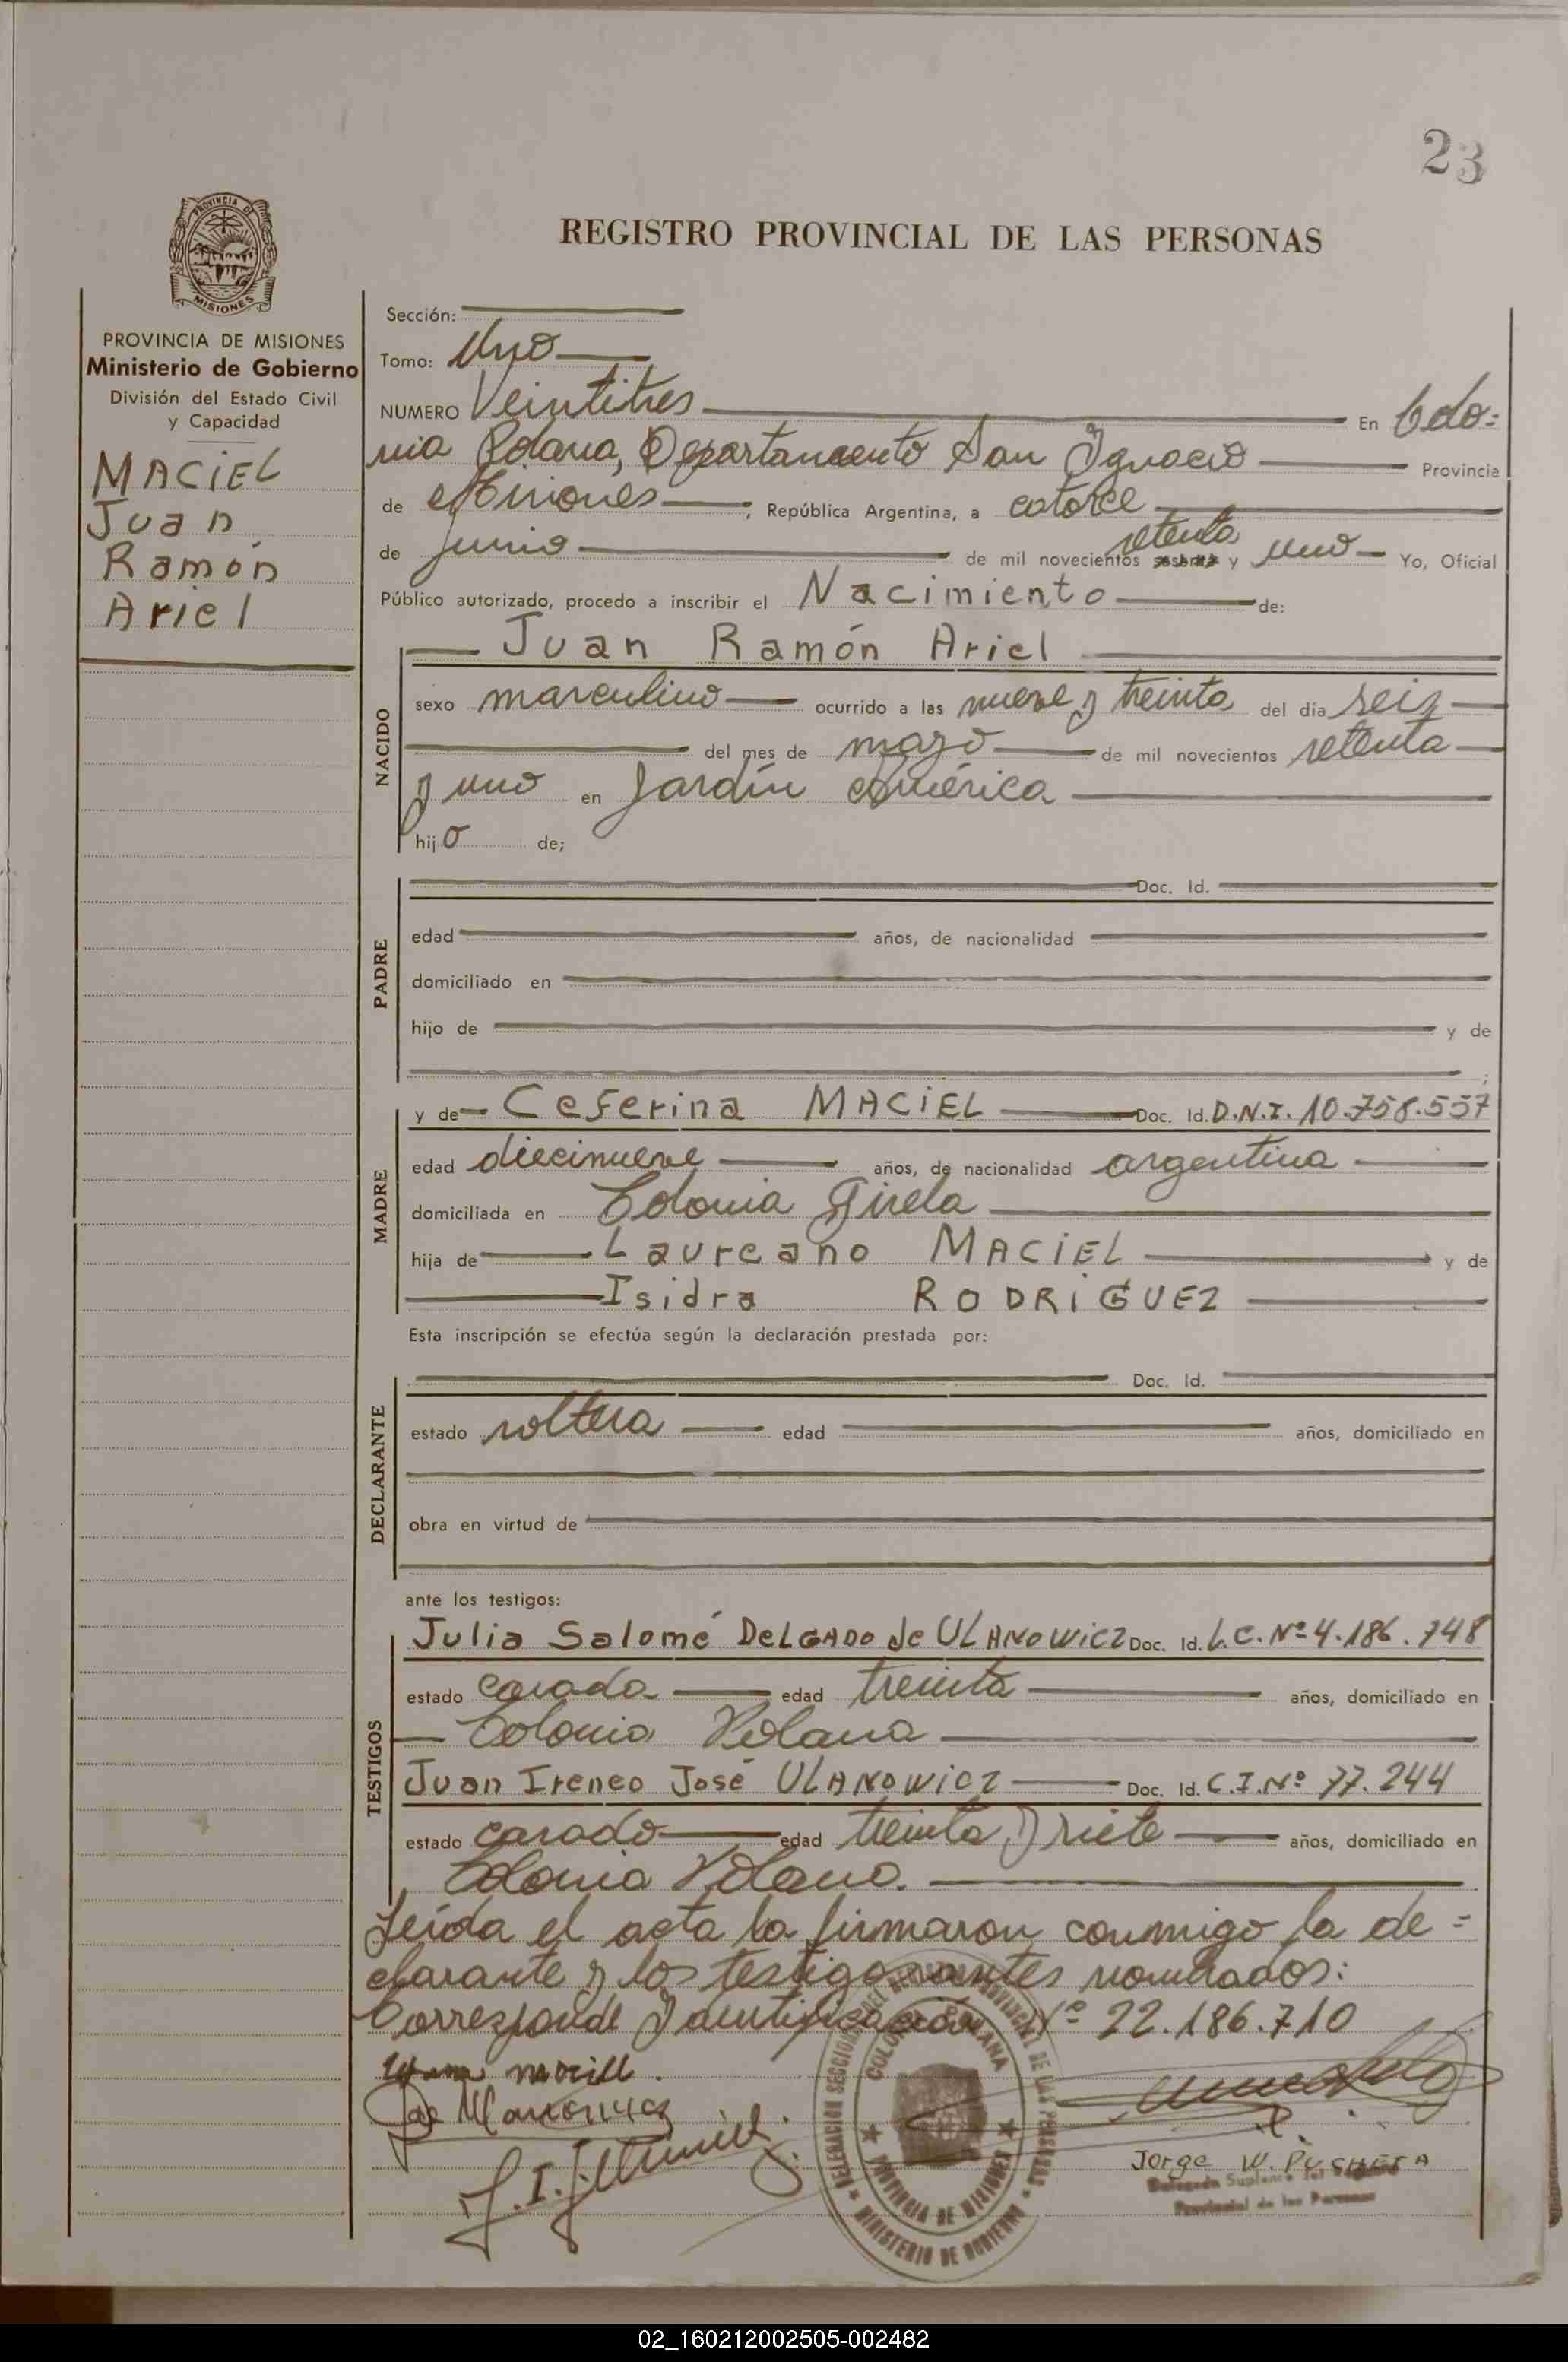 23
PROVINCIA DE
MISIONES
REGISTRO PROVINCIAL DE LAS PERSONAS
PROVINCIA DE MISIONES
Ministerio de Gobierno
División del Estado Civil
y Capacidad
MACIEL
Juan
Ramón
Ariel
Sección:
Tomo: Uno
NUMERO Veintitres En Colo=
nia Polana, Departamento San Ignacio Provincia
de Misiones, República Argentina, a catorce
de junio de mil novecientos setenta y uno Yo, Oficial
Público autorizado, procedo a inscribir el Nacimiento de:
NACIDO
Juan Ramón Ariel
sexo masculino ocurrido a las nueve y treinta del día seis
del mes de mayo de mil novecientos setenta
y uno en Jardín América
hijo de;
PADRE
Doc. Id.
edad años, de nacionalidad
domiciliado en
hijo de y de
;
MADRE
y de Ceferina MACIEL Doc. Id. D.N.I. 10.758.557
edad diecinueve años, de nacionalidad argentina
domiciliada en Colonia
hija de Laureano MACIEL y de
Isidra RODRIGUEZ
Esta inscripción se efectúa según la declaración prestada por:
DECLARANTE
Doc. Id.
estado soltera edad años, domiciliado en
obra en virtud de
ante los testigos:
TESTIGOS
Julia Salomé DELGADO de ULANOWICZ Doc. Id. L.C. Nº 4.186.748
estado casada edad treinta años, domiciliado en
Colonia Polana
Juan Ireneo José ULANOWICZ Doc. Id. C.I. Nº 77.244
estado casado edad treinta y siete años, domiciliado en
Colonia Polana.
Leída el acta la firmaron conmigo la de=
clarante y los testigos antes nombrados:
Corresponde Identificación Nº 22.186.710
COLONIA POLANA
PROVINCIA DE MISIONES
MINISTERIO DE GOBIERNO
Jorge W. PUCHETA
Delegado Suplente del Registro
Provincial de las Personas
02_160212002505-002482